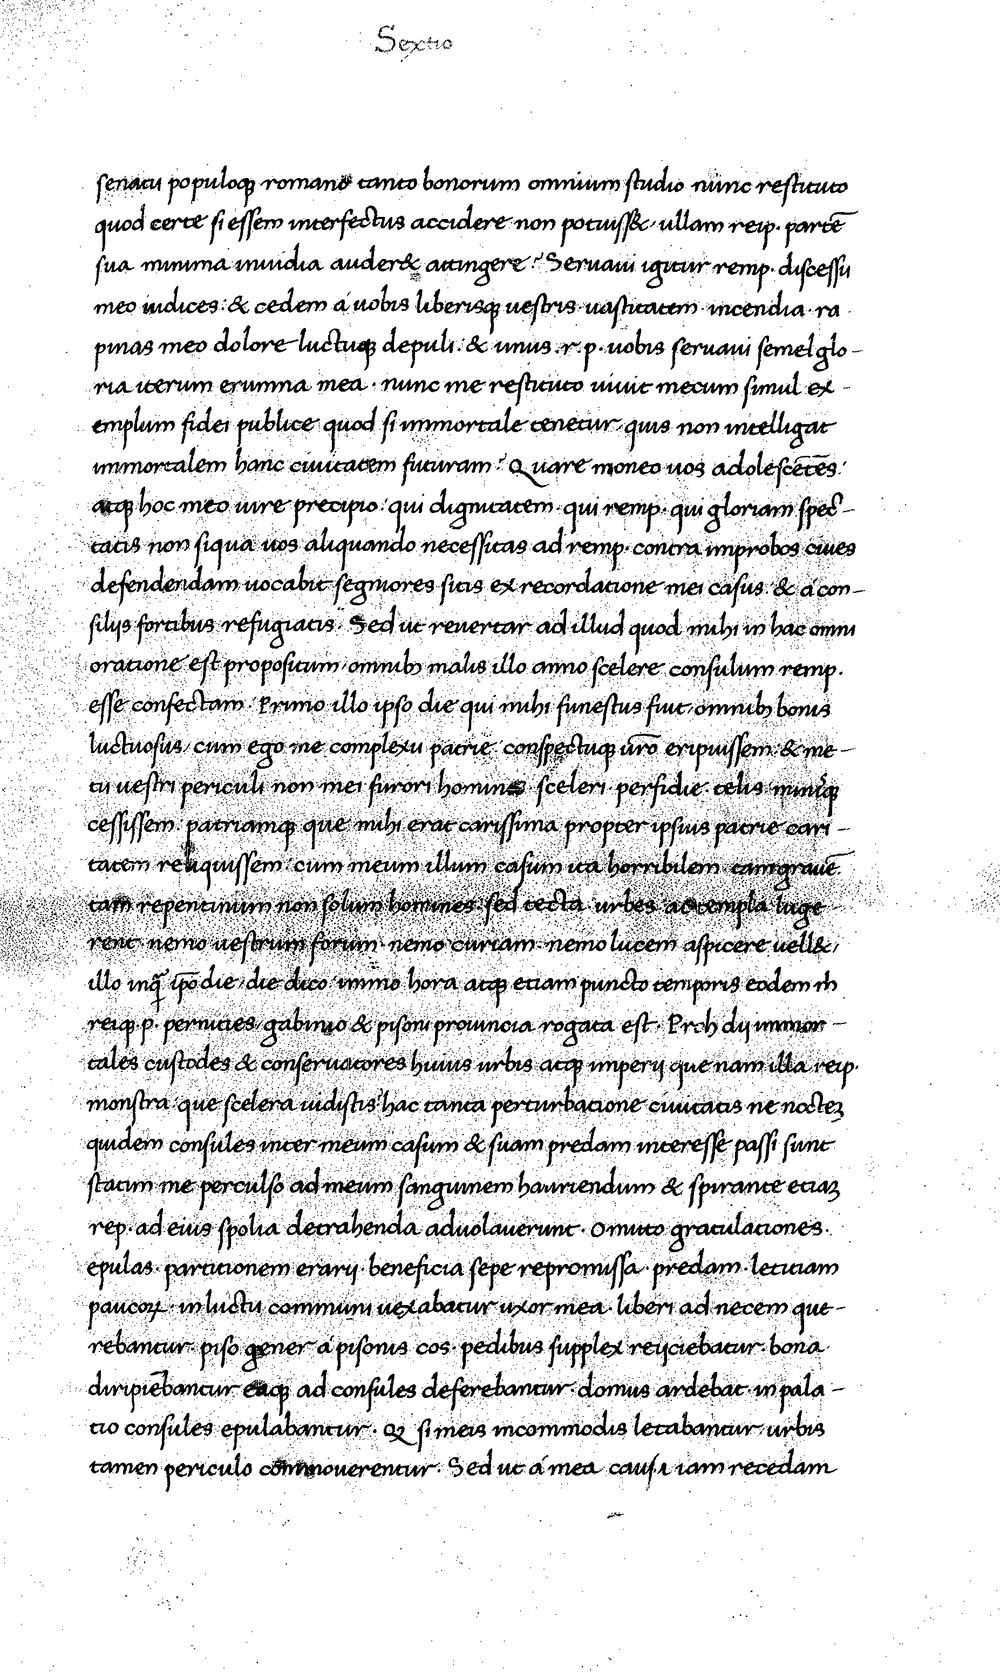 Sextio
senatu populoq; romano tanto bonorum omnium studio nunc restituto
quod certe si essem interfectus accidere non potuiss& / ullam reip. partē
sua minima inuidia auder& attingere? Seruaui igitur remp. discessu
meo iudices: & cedem á uobis liberisq; uestris. uastitatem. incendia. ra
pinas meo dolore luctuq; depuli: & unus. r. p. uobis seruaui semel glo-
ria iterum erumna mea. nunc me restituto uiuit mecum simul ex-
emplum fidei publice quod si immortale tenetur, quis non intelligat
immortalem hanc ciuitatem futuram? Quare moneo uos adolescētēs:
atq; hoc meo iure precipio: qui dignitatem. qui remp. qui gloriam spec-
tatis non siqua uos aliquando necessitas ad remp. contra improbos ciues
defendendam uocabit segniores sitis ex recordatione mei casus: & á con-
silijs fortibus refugiatis. Sed ut reuertar ad illud quod mihi in hac omni
oratione est propositum / omnib; malis illo anno scelere consulum remp.
esse confectam. Primo illo ipso die qui mihi funestus fuit / omnib; bonis
luctuosus, cum ego me complexu patrie. conspectuq; uīo eripuissem: & me-
tu uestri periculi non mei furori hominis sceleri. perfidie. telis. minisq;
cessissem. patriamq; que mihi erat carissima propter ipsius patrie cari-
tatem reliquissem. cum meum illum casum ita horribilem. tam grauē.
tam repentinum non solum homines. sed tecta urbes ac templa luge-
rent. nemo uestrum forum. nemo curiam. nemo lucem aspicere uell&,
illo inq̄ ip̄o die, die dico. immo hora atq; etiam puncto temporis eodem m
reiq; p. pernities / gabinio & pisoni prouincia rogata est. Proh dij immor-
tales custodes & conseruatores huius urbis atq; imperij que nam illa reip.
monstra que scelera uidistis hac tanta perturbatione ciuitatis ne noctez
quidem consules inter meum casum & suam predam interesse passi sunt
statim me perculso ad meum sanguinem hauriendum & spirante etiaz
rep. ad eius spolia detrahenda aduolauerunt. Omitto gratulationes.
epulas. partitionem erarij. beneficia sepe repromissa. predam. letitiam
paucoꝝ. in luctu communi uexabatur uxor mea. liberi ad necem que-
rebantur. piso gener á pisonis cos. pedibus supplex reijciebatur. bona
diripiebantur eaq; ad consules deferebantur. domus ardebat in pala-
tio consules epulabantur. Q; si meis incommodis letabantur / urbis
tamen periculo commouerentur. Sed ut á mea causa iam recedam